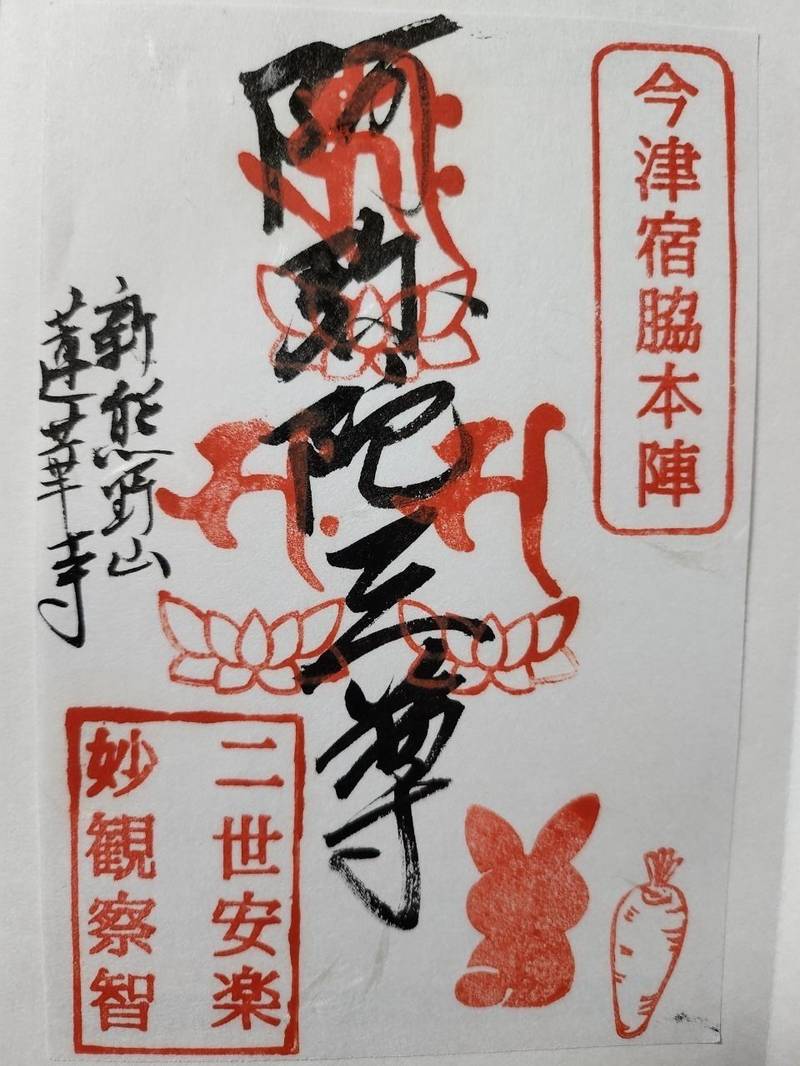 今津宿脇本陣
阿弥陀三尊
新熊野山
蓮華寺
二世安楽
妙観察智